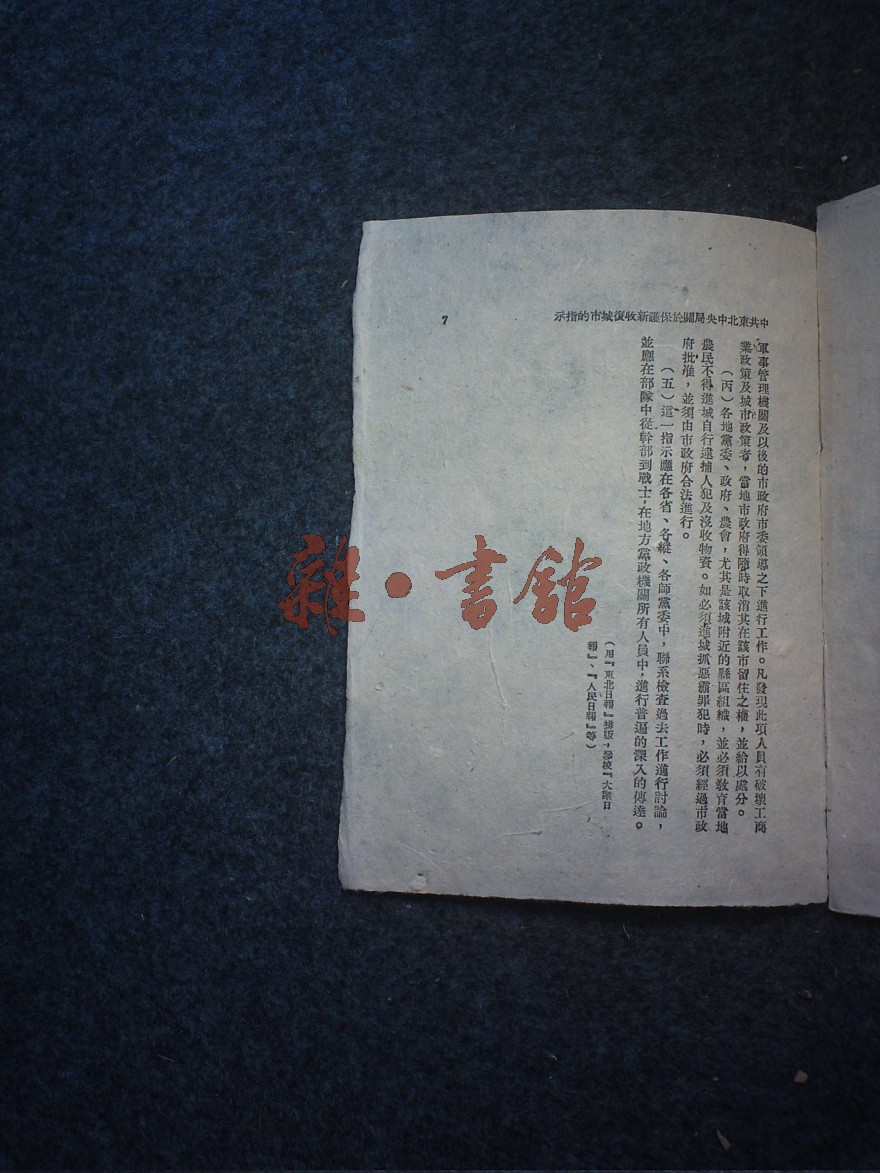 中共東北中央局關於保護新收復城市的指示
7
軍事管理機關及以後的市政府市委領導之下進行工作。凡發現此項人員有破壞工商
業政策及城市政策者，當地市政府得隨時取消其在該市留住之權，並給以處分。
（丙）各地黨委、政府、農會，尤其是該城附近的縣區組織，並必須敎育當地
農民不得進城自行逮捕人犯及沒收物資。如必須進城抓惡霸罪犯時，必須經過市政
府批准，並須由市政府合法進行。
（五）這一指示應在各省、各縱、各師黨委中，聯系檢查過去工作進行討論，
並應在部隊中從幹部到戰士，在地方黨政機關所有人員中，進行普遍的深入的傳達。
（用『東北日報』排版，參校『大衆日
報』、『人民日報』等）
雜·書館